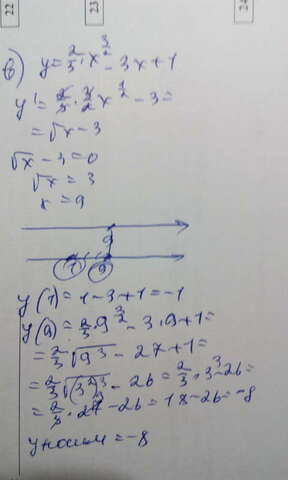 22
23
24
б) y = 2/3 · x^(3/2) - 3x + 1
y' = 2/3 · 3/2 x^(1/2) - 3 =
= √x - 3
√x - 3 = 0
√x = 3
x = 9
9
1 9
y(1) = 1 - 3 + 1 = -1
y(9) = 2/3 · 9^(3/2) - 3 · 9 + 1 =
= 2/3 √9³ - 27 + 1 =
= 2/3 √(3²)³ - 26 = 2/3 · 3³ - 26 =
= 2/3 · 27 - 26 = 18 - 26 = -8
y наим = -8